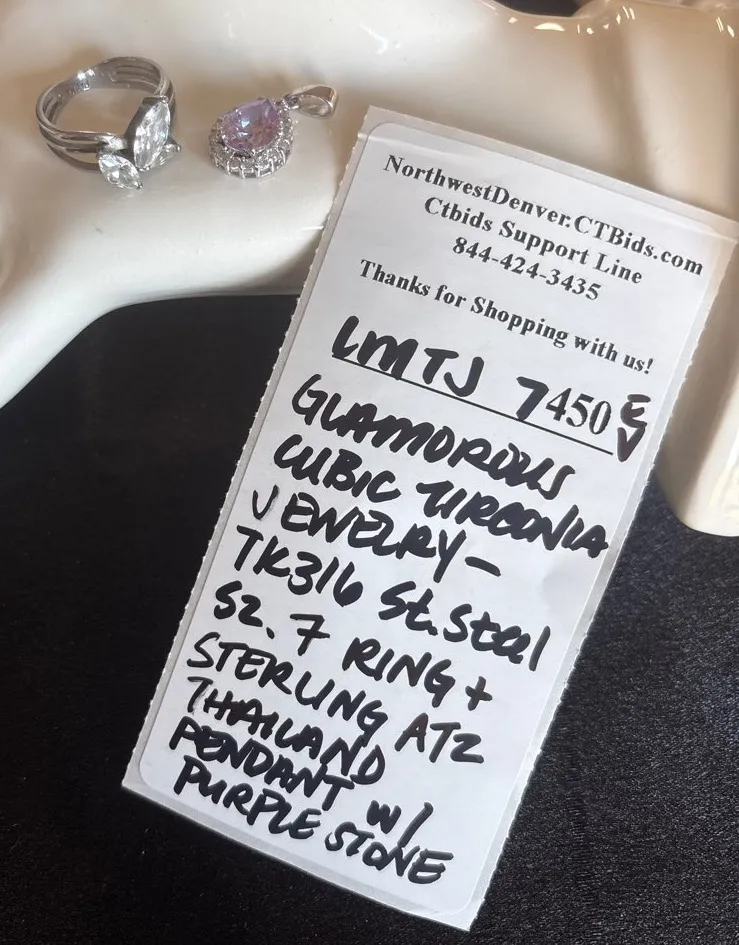 NorthwestDenver.CTBids.com
Ctbids Support Line
844-424-3435
Thanks for Shopping with us!
LMTJ 7450 EV
GLAMOROUS
CUBIC ZIRCONIA
JEWELRY-
TK316 St.Steel
SZ. 7 RING +
STERLING ATZ
THAILAND
PENDANT W/
PURPLE STONE